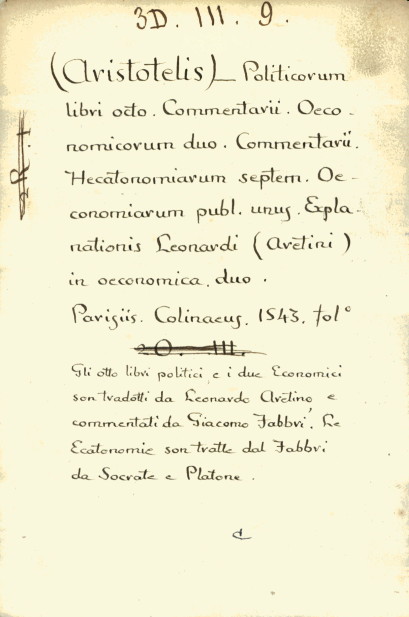 3D. III. 9.
(Aristotelis) Politicorum
libri octo. Commentarii. Oeco-
nomicorum duo. Commentarii.
Hecatonomiarum septem. Oe-
conomiarum publ. unus. Expla-
nationis Leonardi (Aretini)
in oeconomica, duo.
Parisiis. Colinaeus. 1543. fol°
Gli otto libri politici e i due Economici
son tradotti da Leonardo Aretino e
commentati da Giacomo Fabbri. Le
Ecatonomie son tratte dal Fabbri
da Socrate e Platone.